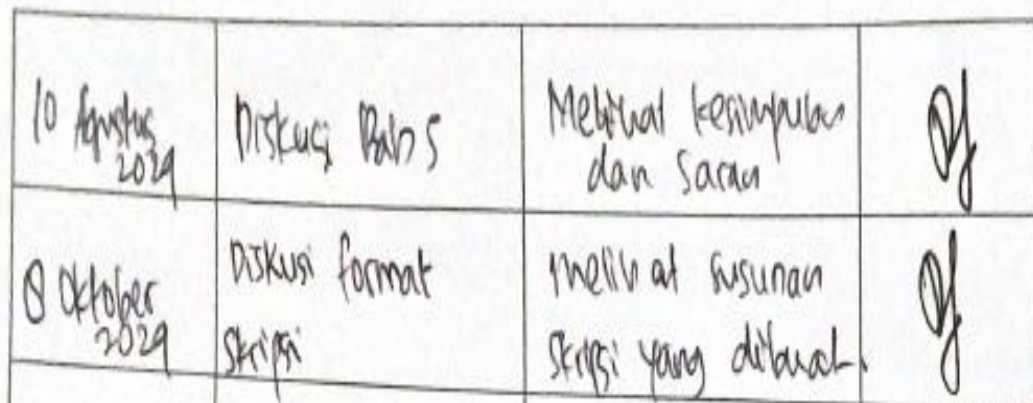 10 Agustus
2024
Diskusi Bab 5
Melihat kesimpulan
dan saran
8 Oktober
2024
Diskusi format
skripsi
melihat susunan
skripsi yang dibuat.